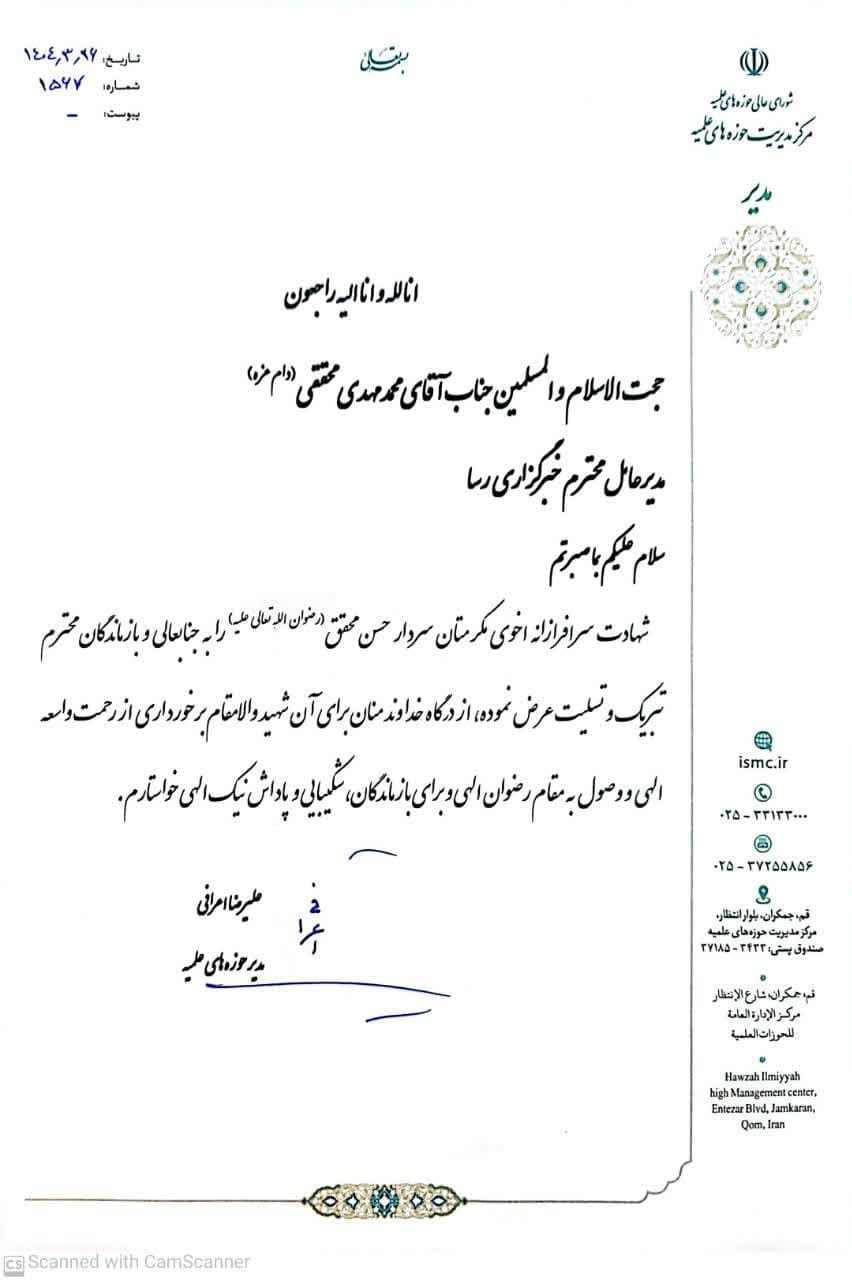 بسمه تعالی
تاریخ: ۱۴۰۴٫۳٫۲۶
شماره: ۱۵۶۷
پیوست: –
شورای عالی حوزه های علمیه
مرکز مدیریت حوزه های علمیه
مدیر
انا لله و انا الیه راجعون
حجت الاسلام و المسلمین جناب آقای محمد مهدی محققی (دام عزه)
مدیر عامل محترم خبرگزاری رسا
سلام علیکم بما صبرتم
شهادت سرافرازانه اخوی مکرمتان سردار حسن محقق (رضوان الله تعالی علیه) را به جنابعالی و بازماندگان محترم
تبریک و تسلیت عرض نموده، از درگاه خداوند منان برای آن شهید والامقام برخورداری از رحمت واسعه
الهی و وصول به مقام رضوان الهی و برای بازماندگان، شکیبایی و پاداش نیک الهی خواستارم.
علیرضا اعرافی
مدیر حوزه های علمیه
ismc.ir
۰۲۵ – ۳۳۱۳۳۰۰۰
۰۲۵ – ۳۷۲۵۵۸۵۶
قم، جمکران، بلوار انتظار،
مرکز مدیریت حوزه‌های علمیه
صندوق پستی: ۳۴۳۳ – ۳۷۱۸۵
قم، جمکران، شارع الإنتظار
مرکز الإدارة العامة
للحوزات العلمیة
Hawzah Ilmiyyah
high Management center,
Entezar Blvd, Jamkaran,
Qom, Iran
CS Scanned with CamScanner